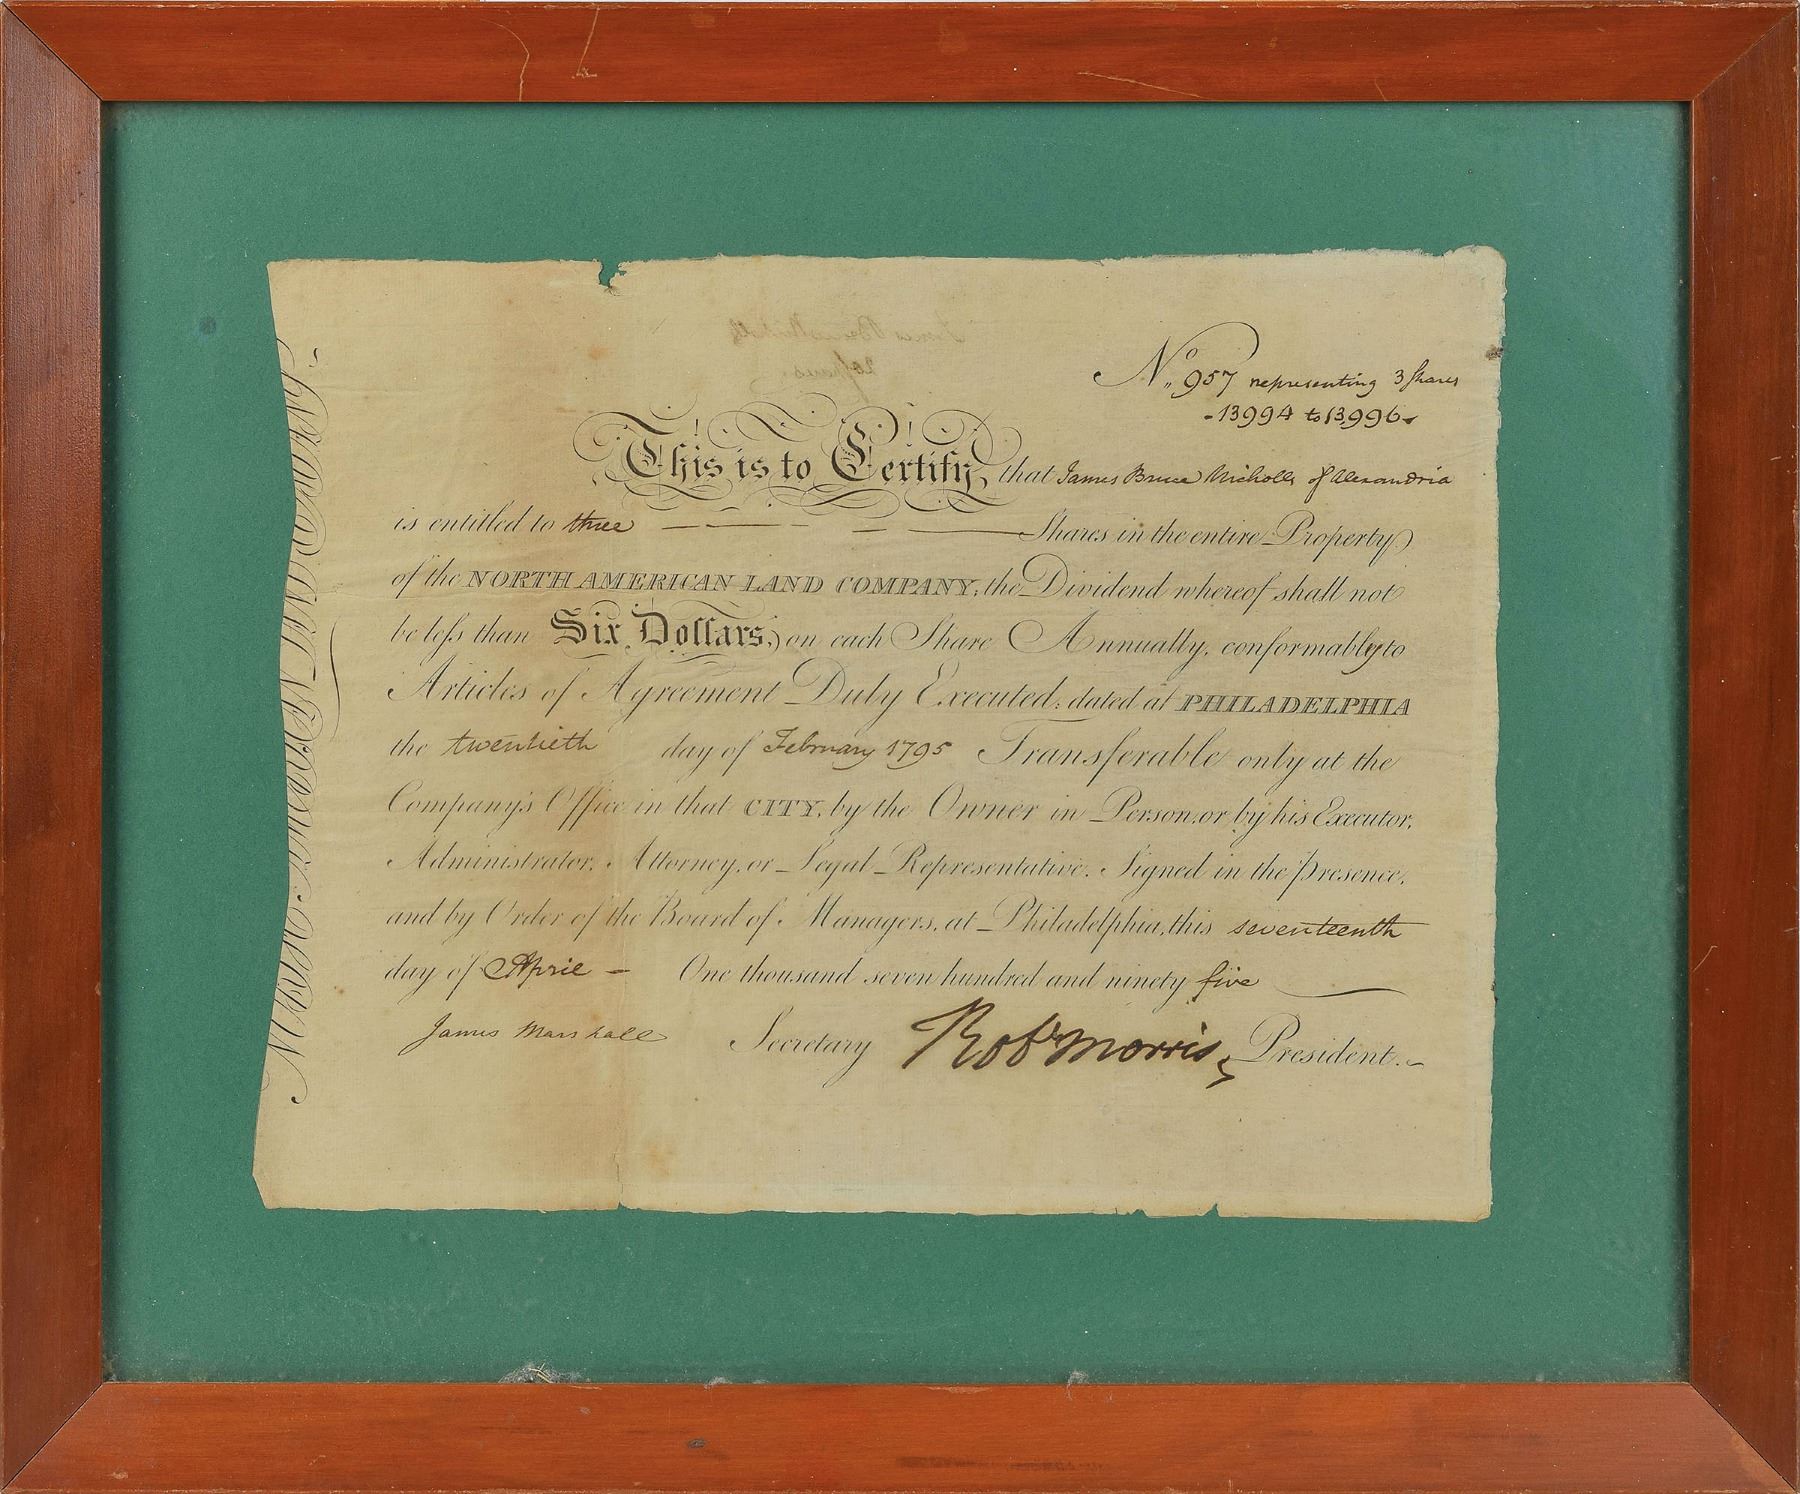 No. 957 representing 3 Shares
-13994 to 13996-
This is to Certify, that James Bruce Nicholls of Alexandria
is entitled to three Shares in the entire Property
of the NORTH AMERICAN LAND COMPANY; the Dividend whereof shall not
be less than Six Dollars, on each Share Annually, conformably to
Articles of Agreement Duly Executed; dated at PHILADELPHIA
the twentieth day of February 1795 Transferable only at the
Company's Office in that CITY, by the Owner in Person, or by his Executor,
Administrator, Attorney, or Legal Representative. Signed in the presence,
and by Order of the Board of Managers, at Philadelphia, this seventeenth
day of April — One thousand seven hundred and ninety five
James Marshall Secretary Robt Morris, President.